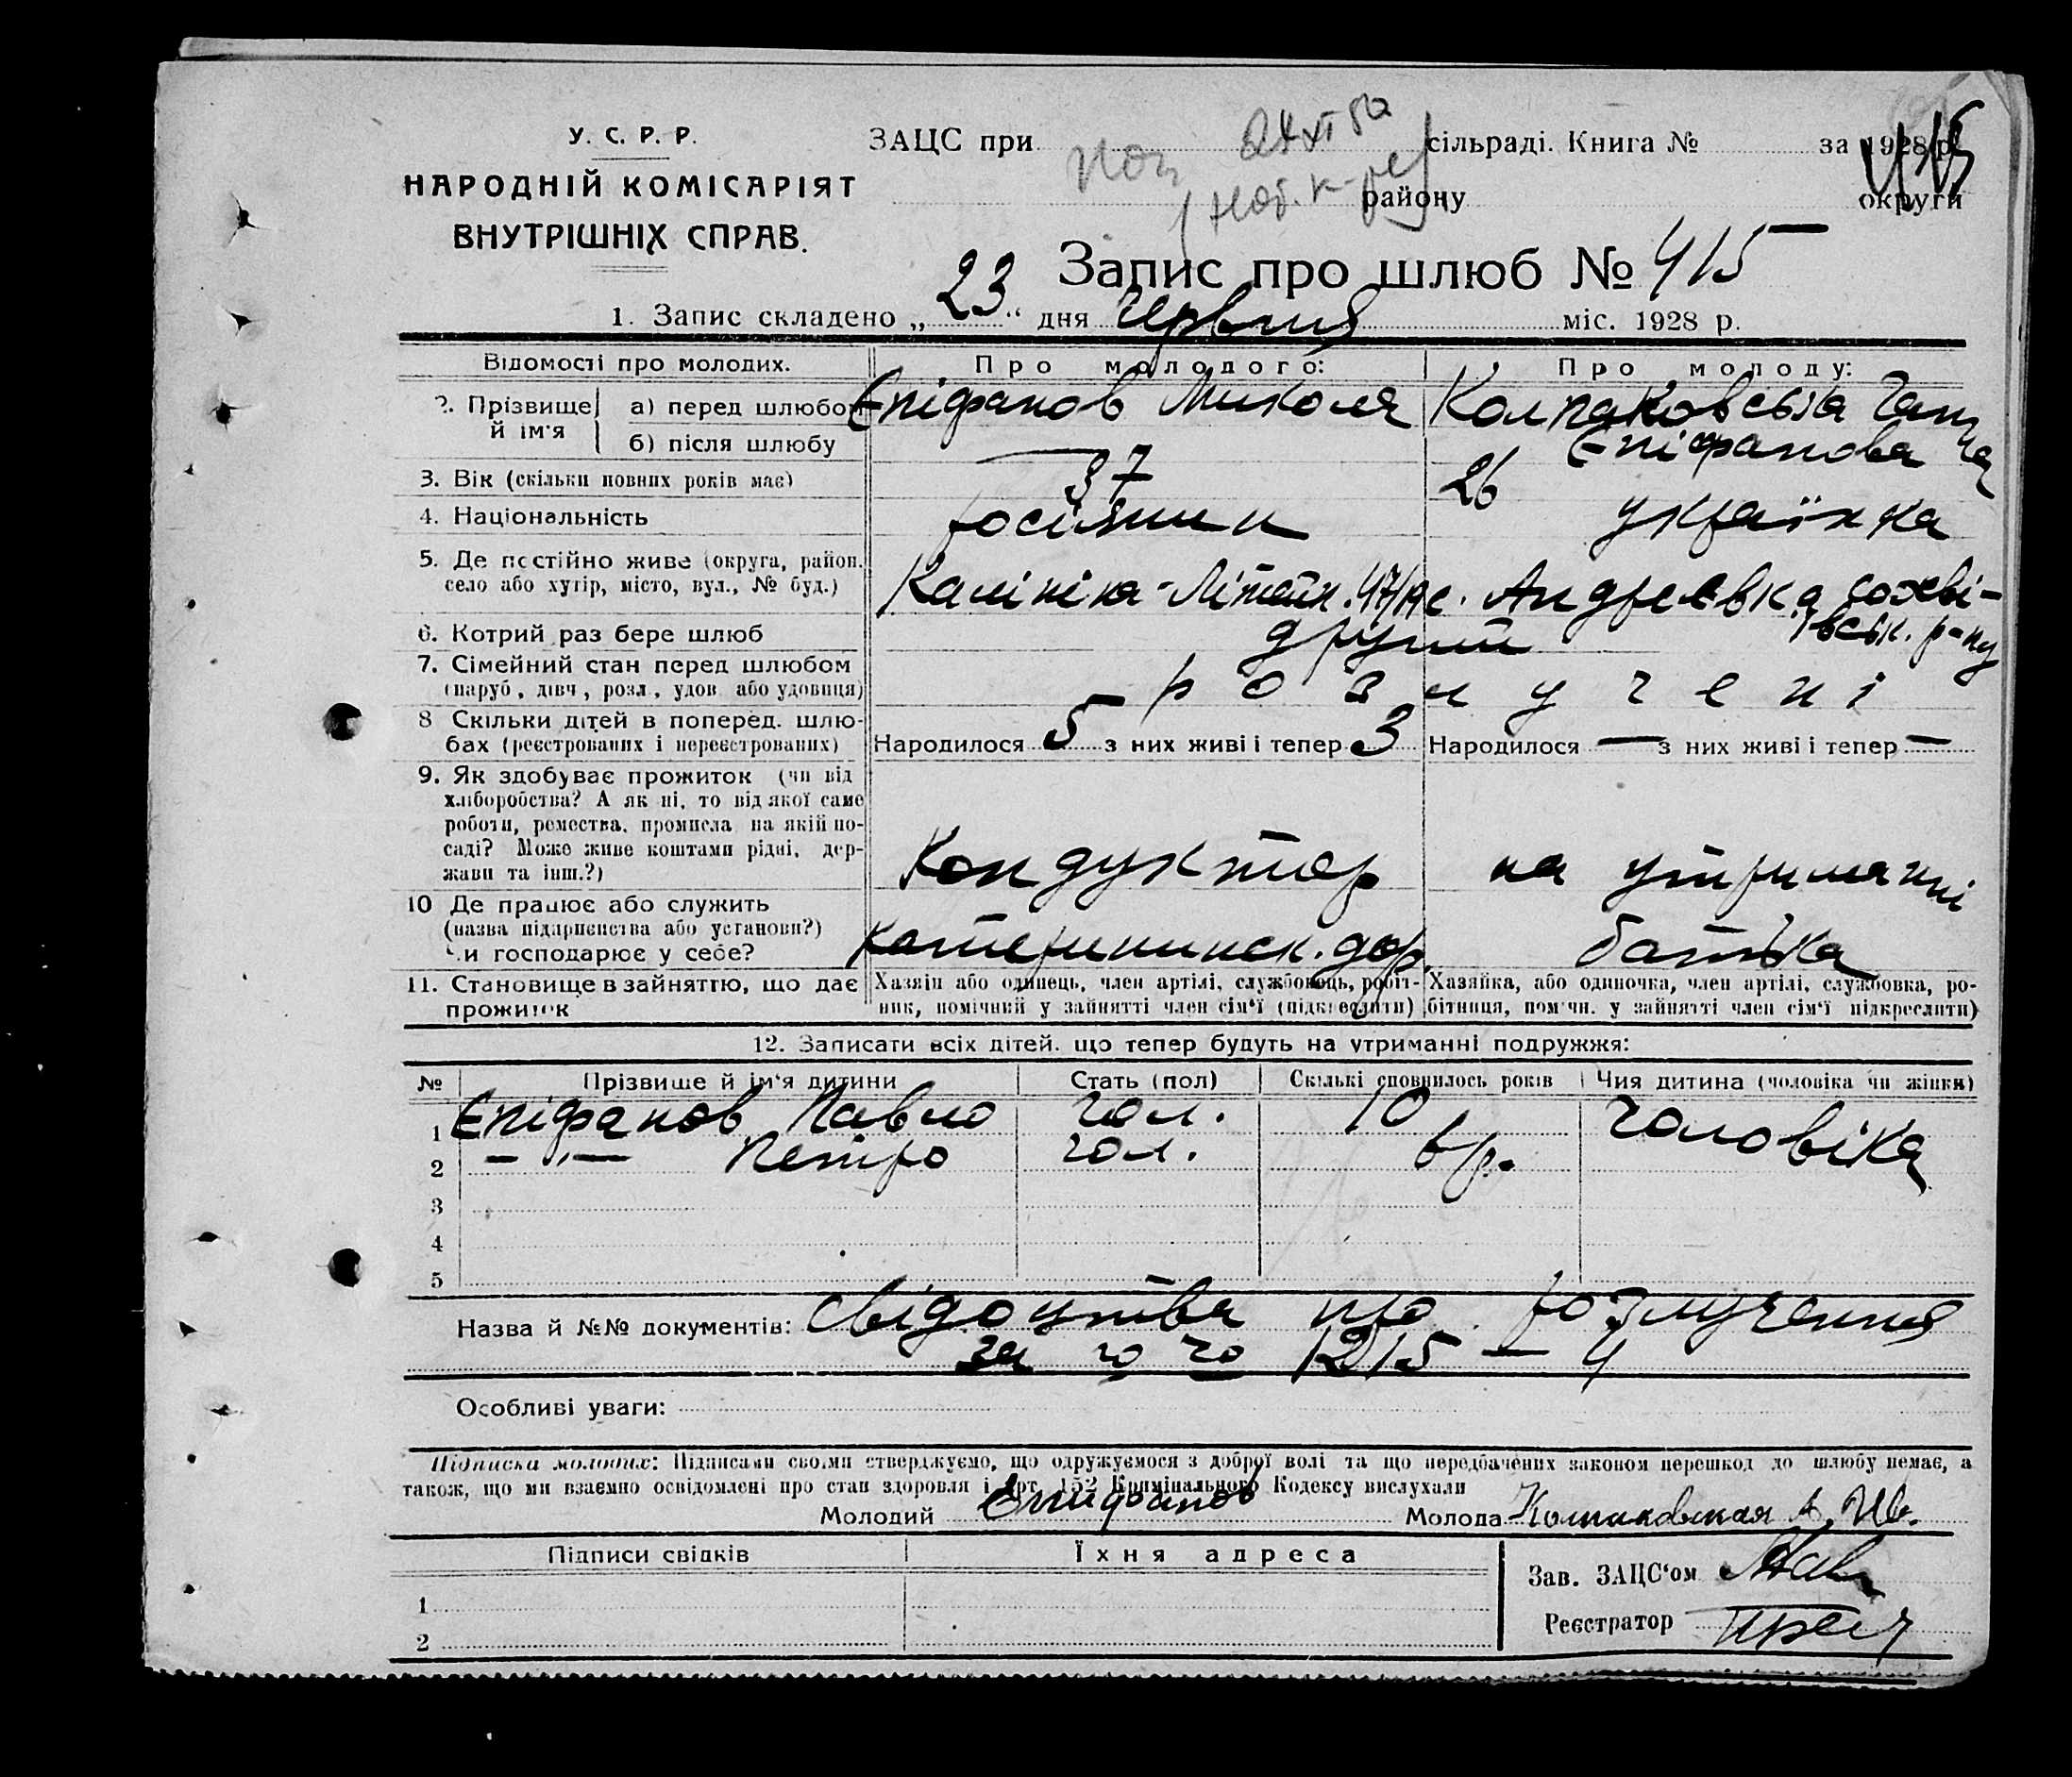 У. С. Р. Р.
НАРОДНІЙ КОМІСАРІЯТ
ВНУТРІШНІХ СПРАВ.
ЗАЦС при сільраді. Книга № за 1928 р.
415
району округи
Запис про шлюб № 415
1. Запис складено „23" дня Червня міс. 1928 р.
Відомості про молодих. Про молодого: Про молоду:
2. Прізвище й ім'я
а) перед шлюбом Епіфанов Микола Колпаковська Ганна
б) після шлюбу — Епіфанова
3. Вік (скільки повних років має) 37 26
4. Національність росіянин українка
5. Де постійно живе (округа, район, село або хутір, місто, вул., № буд.) Калініна-Літейн. 47/19 с. Андреєвка
6. Котрий раз бере шлюб другий
7. Сімейний стан перед шлюбом (паруб, дівч, розл, удов або удовиця) розлучені
8 Скільки дітей в поперед. шлюбах (реєстрованих і нереєстрованих) Народилося 5 з них живі і тепер 3 Народилося — з них живі і тепер —
9. Як здобуває прожиток (чи від хліборобства? А як ні, то від якої саме роботи, ремества, промисла на якій посаді? Може живе коштами рідні, держави та інш.?) Кондуктор на утриманні
10 Де працює або служить (назва підприємства або установи?) Чи господарює у себе? Катерининск. дор. батька
11. Становище в зайняттю, що дає прожиток
Хазяїн або одинець, член артілі, службовець, робітник, помічний у зайнятті член сім'ї (підкреслити)
Хазяйка, або одиночка, член артілі, службовка, робітниця, помічн. у зайнятті член сім'ї підкреслити)
12. Записати всіх дітей, що тепер будуть на утриманні подружжя:
№ Прізвище й ім'я дитини Стать (пол) Скількі сповнилось років Чия дитина (чоловіка чи жінки)
1 Епіфанов Павло чол. 10 чоловіка
2 —"— Петро чол. 6 р.
3
4
5
Назва й №№ документів: Свідоцтва про розлучення
за 1215 — 4
Особливі уваги:
Підписка молодих: Підписами своїми стверджуємо, що одружуємося з доброї волі та що передбачених законом перешкод до шлюбу немає, а
також, що ми взаємно освідомлені про стан здоровля і Арт. 152 Кримінального Кодексу вислухали
Молодий Епифанов Молода Колпаковская А. Ив.
Підписи свідків Їхня адреса
Зав. ЗАЦС'ом
1
Реєстратор
2